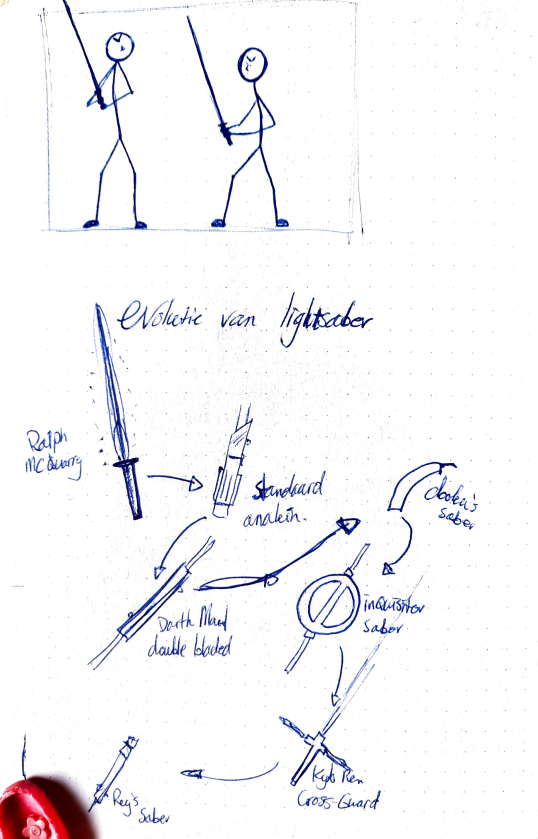 evolutie van lightsaber
Ralph
MCQuarry
Standaard
anakin.
dooku's
saber
Darth Maul
double bladed
inquisitor
saber
Kylo Ren
Cross-Guard
Rey's
Saber